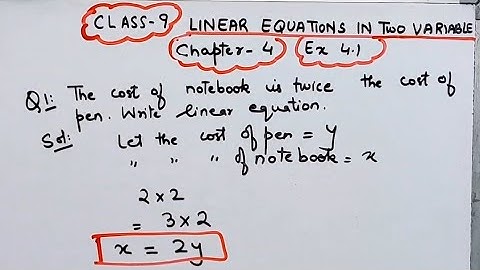 CLASS-9 LINEAR EQUATIONS IN TWO VARIABLE
Chapter-4 Ex 4.1
Q1: The cost of notebook is twice the cost of
pen. Write linear equation.
Sol: Let the cost of pen = y
" " " of notebook = x
2 × 2
= 3 × 2
x = 2y